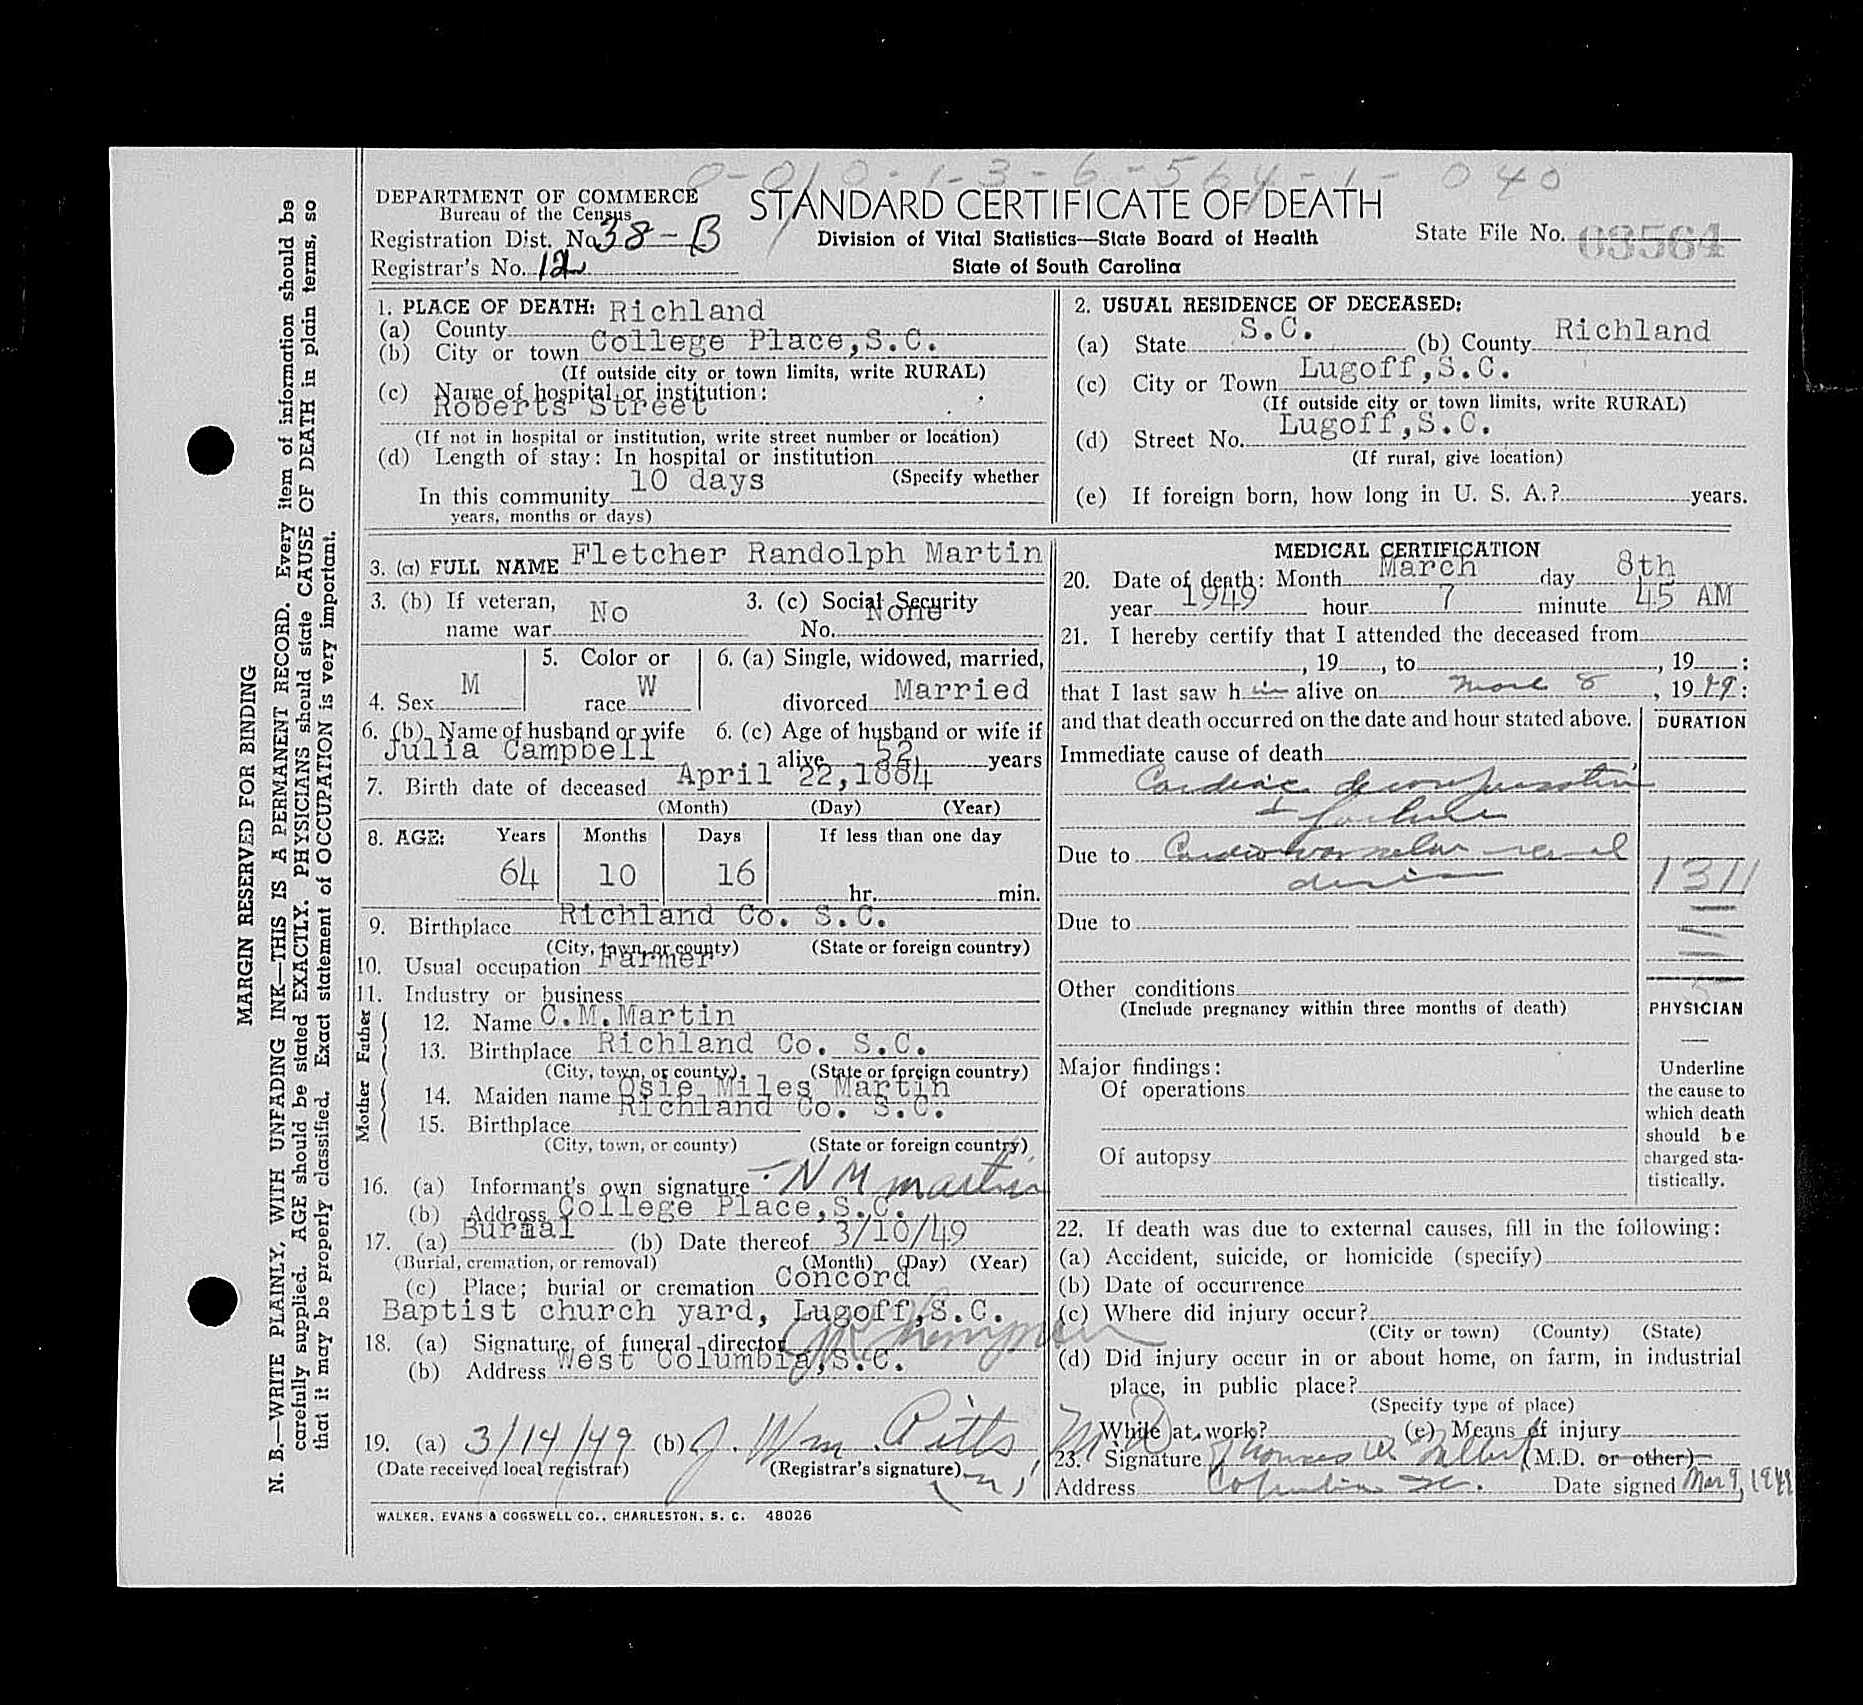 0-010-1-3-6-564-1-040
DEPARTMENT OF COMMERCE
Bureau of the Census
Registration Dist. No. 38-B
Registrar's No. 12
STANDARD CERTIFICATE OF DEATH
Division of Vital Statistics—State Board of Health
State of South Carolina
State File No. 03564
MARGIN RESERVED FOR BINDING
N. B.—WRITE PLAINLY, WITH UNFADING INK—THIS IS A PERMANENT RECORD. Every item of information should be
carefully supplied. AGE should be stated EXACTLY. PHYSICIANS should state CAUSE OF DEATH in plain terms, so
that it may be properly classified. Exact statement of OCCUPATION is very important.
1. PLACE OF DEATH:
(a) County Richland
(b) City or town College Place,S.C.
(If outside city or town limits, write RURAL)
(c) Name of hospital or institution:
Roberts Street
(If not in hospital or institution, write street number or location)
(d) Length of stay: In hospital or institution
(Specify whether
In this community 10 days
years, months or days)
2. USUAL RESIDENCE OF DECEASED:
(a) State S.C. (b) County Richland
(c) City or Town Lugoff,S.C.
(If outside city or town limits, write RURAL)
(d) Street No. Lugoff,S.C.
(If rural, give location)
(e) If foreign born, how long in U. S. A.? years.
3. (a) FULL NAME Fletcher Randolph Martin
3. (b) If veteran, name war No
3. (c) Social Security No. None
4. Sex M
5. Color or race W
6. (a) Single, widowed, married, divorced Married
6. (b) Name of husband or wife Julia Campbell
6. (c) Age of husband or wife if alive 52 years
7. Birth date of deceased April 22,1884
(Month) (Day) (Year)
8. AGE: Years Months Days If less than one day
64 10 16 hr. min.
9. Birthplace Richland Co. S.C.
(City, town, or county) (State or foreign country)
10. Usual occupation Farmer
11. Industry or business
Father
12. Name C.M.Martin
13. Birthplace Richland Co. S.C.
(City, town, or county) (State or foreign country)
Mother
14. Maiden name Osie Miles Martin
15. Birthplace Richland Co. S.C.
(City, town, or county) (State or foreign country)
16. (a) Informant's own signature N M Martin
(b) Address College Place,S.C.
17. (a) Burial (b) Date thereof 3/10/49
(Burial, cremation, or removal) (Month) (Day) (Year)
(c) Place; burial or cremation Concord
Baptist church yard, Lugoff,S.C.
18. (a) Signature of funeral director
(b) Address West Columbia,S.C.
19. (a) 3/14/49 (b) J. Wm. Pitts
(Date received local registrar) (Registrar's signature)
WALKER, EVANS & COGSWELL CO., CHARLESTON, S. C. 48026
MEDICAL CERTIFICATION
20. Date of death: Month March day 8th
year 1949 hour 7 minute 45 AM
21. I hereby certify that I attended the deceased from
, 19 , to , 19 :
that I last saw h im alive on March 8 , 1949:
and that death occurred on the date and hour stated above.
DURATION
Immediate cause of death
Cardiac decompensation
& failure
Due to Cardiovascular-renal
disease
1311
Due to
Other conditions
(Include pregnancy within three months of death)
PHYSICIAN
Major findings:
Of operations
Of autopsy
Underline
the cause to
which death
should be
charged sta-
tistically.
22. If death was due to external causes, fill in the following:
(a) Accident, suicide, or homicide (specify)
(b) Date of occurrence
(c) Where did injury occur?
(City or town) (County) (State)
(d) Did injury occur in or about home, on farm, in industrial
place, in public place?
(Specify type of place)
While at work? (e) Means of injury
23. Signature Thomas (M.D. or other)
Address Columbia SC. Date signed Mar 9, 1949